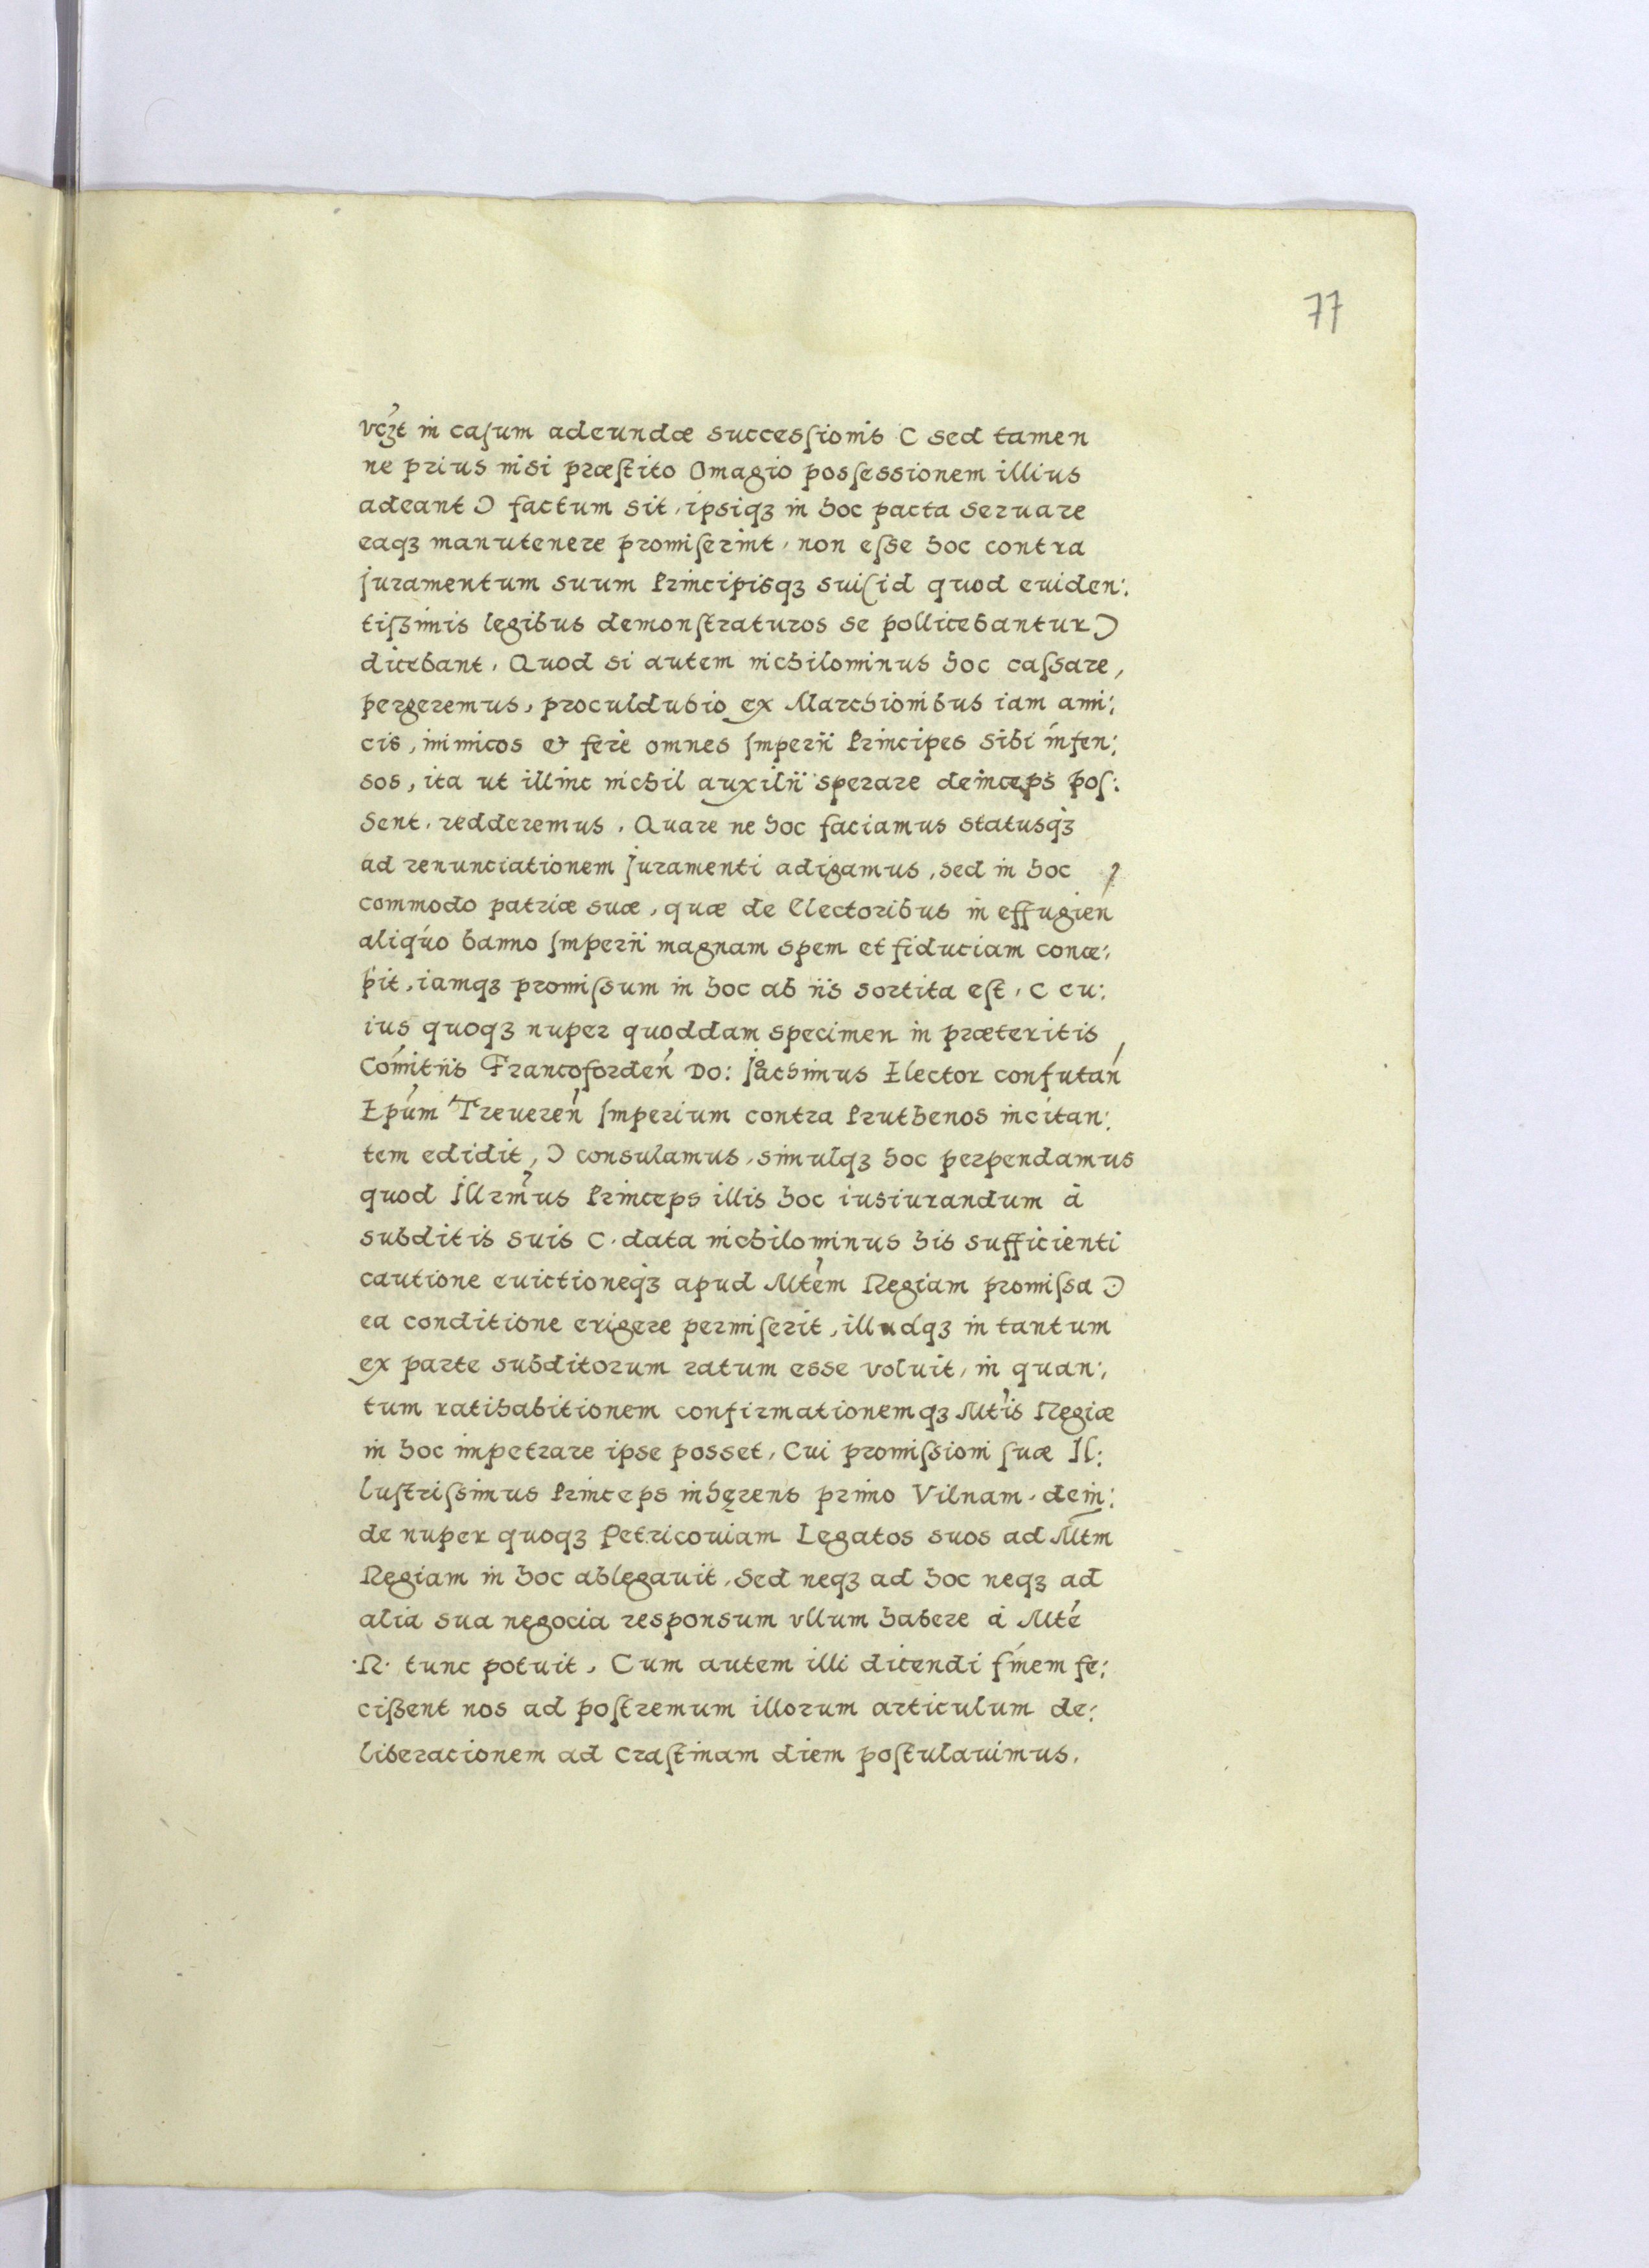 77
vczt in caſum adeundæ succesſionis ( sed tamen
ne prius nisi præſtito Omagio posſessionem illius
adeant ) factum sit, ipsiqꝫ in hoc pacta seruare
eaqꝫ manutenere promiſerint, non eſse hoc contra
juramentum suum Principisqꝫ sui (id quod euiden:
tiſsimis legibus demonſtraturos se pollicebantur )
dicebant. Quod si autem nichilominus hoc caſsare,
pergeremus, proculdubio ex Marchionibus iam ami:
cis, inimicos & fere omnes Imperii Principes sibi infen:
sos, ita ut illinc nichil auxilii sperare deinceps poſ:
sent, redderemus. Quare ne hoc faciamus statusqꝫ
ad renunciationem juramenti adigamus, sed in hoc
commodo patriæ suæ, quæ de Electoribus in effugien
aliquo banno Imperii magnam spem et fiduciam conce:
pit, iamqꝫ promiſsum in hoc ab iis sortita eſt, ( cu:
ius quoqꝫ nuper quoddam specimen in præteritis
Comitiis Francoforden Do: Joachimus Elector confutan
Epum Treueren Imperium contra Pruthenos incitan:
tem edidit, ) consulamus, simulqꝫ hoc perpendamus
quod Illrmus Princeps illis hoc iusiurandum à
subditis suis ( data nichilominus his sufficienti
cautione euictioneqꝫ apud Mtem Regiam promiſsa )
ea conditione erigere permiſerit, illudqꝫ in tantum
ex parte subditorum ratum esse voluit, in quan:
tum ratihabitionem confirmationemqꝫ Mtis Regiæ
in hoc impetrare ipse posset. Cui promiſsioni ſuæ Il:
luſtriſsimus Princeps inhęrens primo Vilnam, dein:
de nuper quoqꝫ Petricouiam Legatos suos ad Mtm
Regiam in hoc ablegauit, Sed neqꝫ ad hoc neqꝫ ad
alia sua negocia responsum vllum habere à Mte
.R. tunc potuit. Cum autem illi dicendi finem fe:
ciſsent nos ad poſtremum illorum articulum de:
liberacionem ad craſtinam diem poſtulauimus.